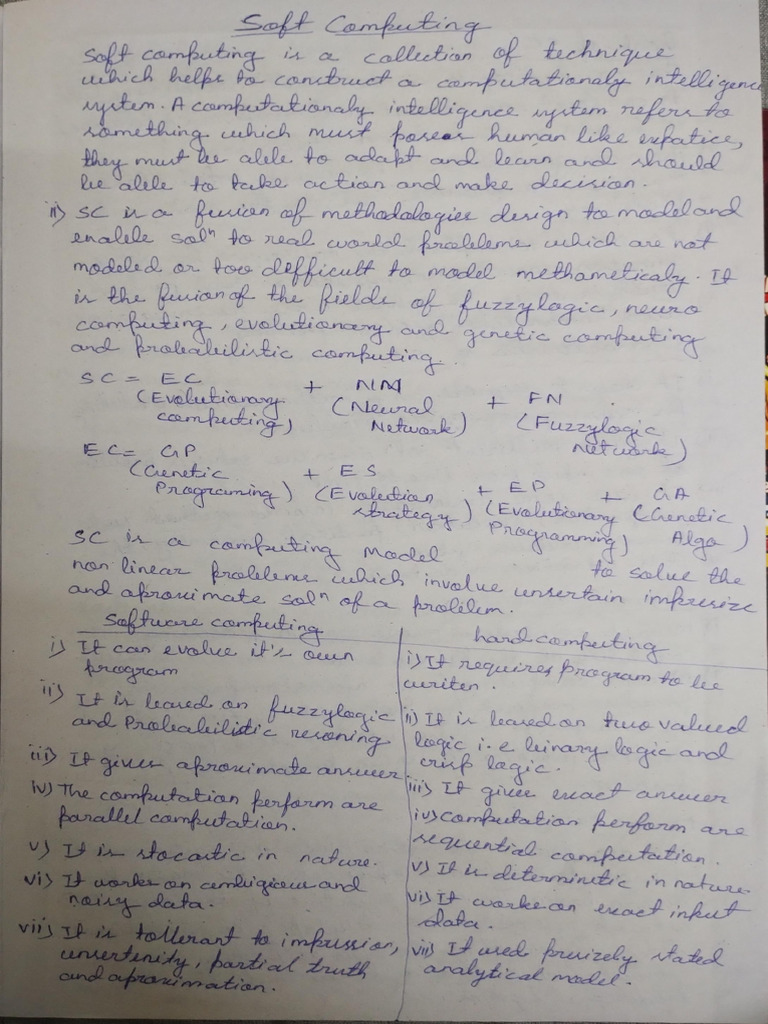 Soft Computing
Soft computing is a collection of technique
which helps to construct a computationaly intelligence
system. A computationaly intelligence system refers to
something which must poses human like expatice,
they must be able to adapt and learn and should
be able to take action and make decision.
ii) SC is a fusion of methodologies design to model and
enable solⁿ to real world problems which are not
modeled or too difficult to model methametically. It
is the fusion of the fields of fuzzylogic, neuro
computing, evolutionary and genetic computing
and probabilistic computing.
SC = EC + NN + FN
(Evolutionary computing) (Neural Network) (Fuzzylogic Network)
EC = GP + ES + EP + GA
(Genetic Programing) (Evolution strategy) (Evolutionary Programming) (Genetic Algo)
SC is a computing Model to solve the
non linear problems which involve unsertain impresize
and aproximate solⁿ of a problem.
Software computing
i) It can evolve it's own
program
ii) It is based on fuzzylogic
and Probabilistic resoning
iii) It gives aproximate answer
iv) The computation perform are
parallel computation.
v) It is stocastic in nature.
vi) It works on ambigious and
noisy data.
vii) It is tollerant to impression,
unsertenity, partial truth
and aproximation.
hard computing
i) It requires program to be
writen.
ii) It is based on two valued
logic i.e binary logic and
crisp logic.
iii) It gives exact answer
iv) computation perform are
sequential computation.
v) It is determinetic in nature
vi) It works on exact input
data.
vii) It used prezizely stated
analytical model.